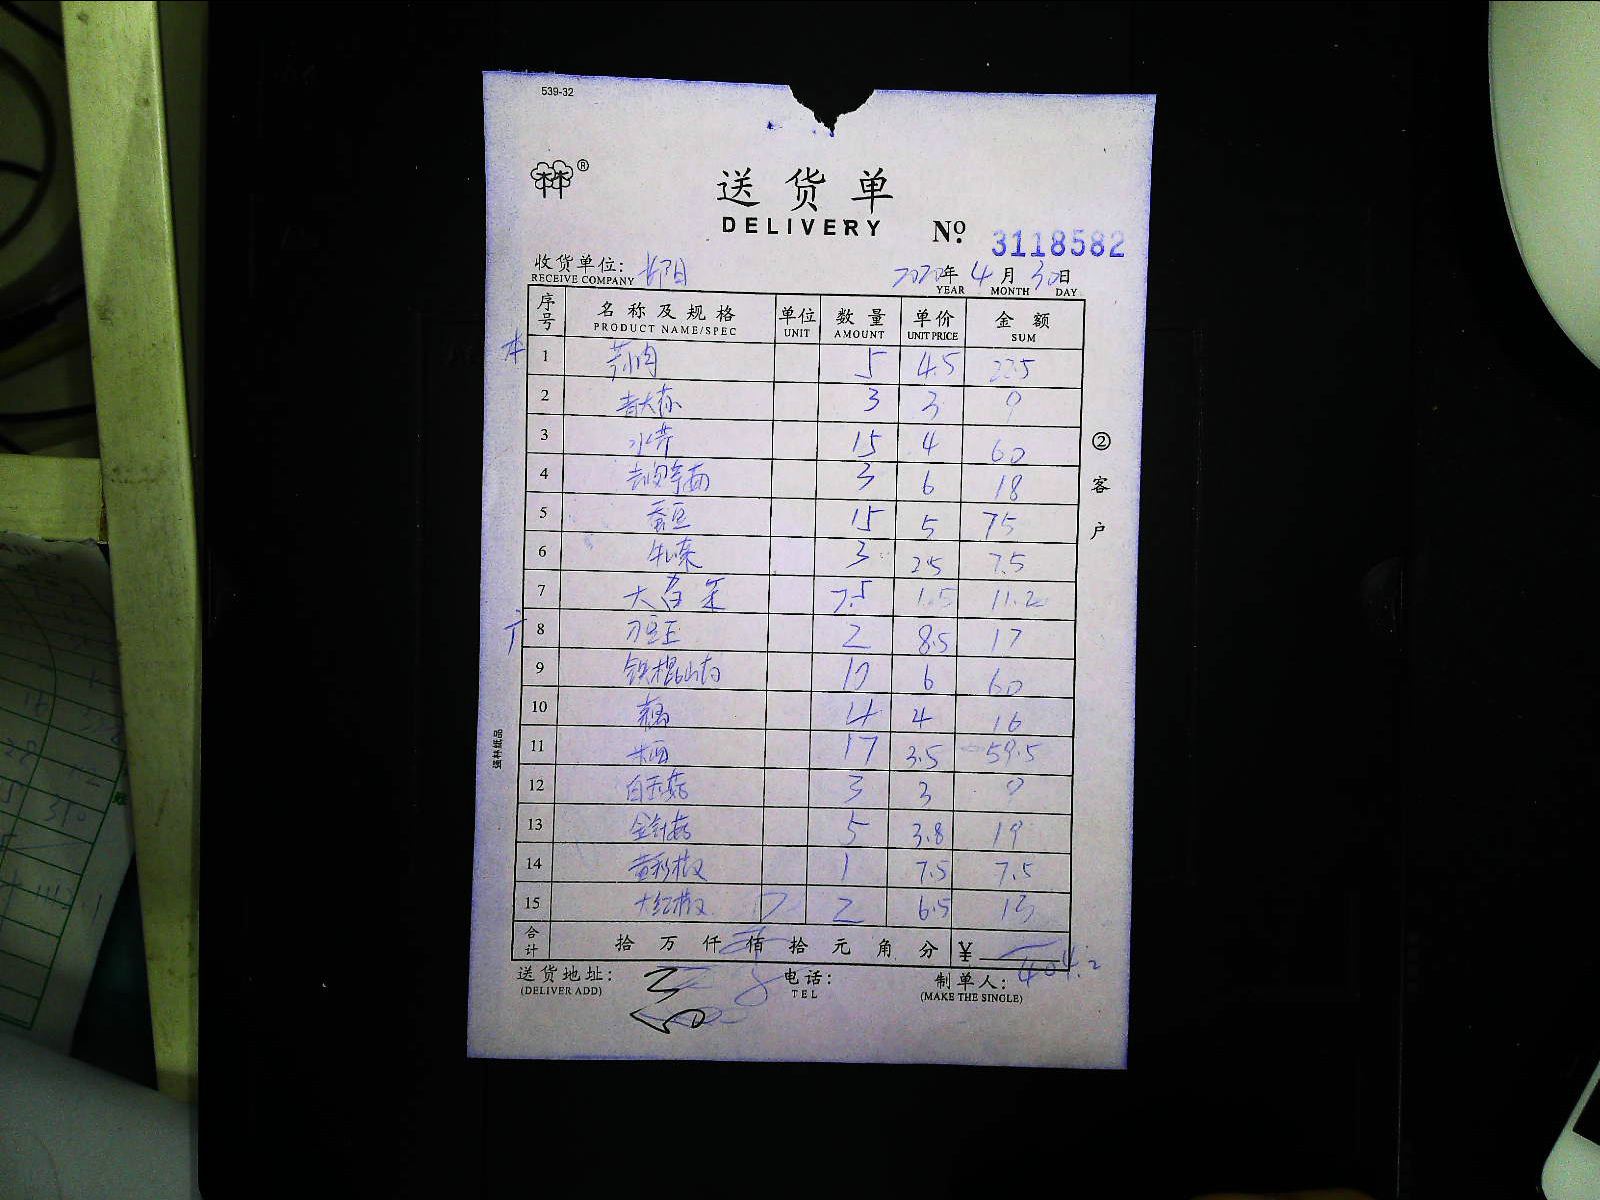 539-32
®
送货单
DELIVERY
No. 3118582
收货单位: 长阳
RECEIVE COMPANY
2020年4月30日
YEAR MONTH DAY
序号 名称及规格 单位 数量 单价 金额
PRODUCT NAME/SPEC UNIT AMOUNT UNIT PRICE SUM
1 5 4.5 22.5
2 3 3 9
3 水芹 15 4 60
4 3 6 18
5 蚕豆 15 5 75
6 3 2.5 7.5
7 大白菜 7.5 1.5 11.2
8 刀豆 2 8.5 17
9 铁棍山药 10 6 60
10 4 4 16
11 17 3.5 59.5
12 白玉菇 3 3 9
13 金针菇 5 3.8 19
14 黄彩椒 1 7.5 7.5
15 大红椒 2 6.5 13
合计 拾万仟佰拾元角分 ¥ 404.2
送货地址: 电话: 制单人:
(DELIVER ADD) TEL (MAKE THE SINGLE)
②客户
强林纸品
310